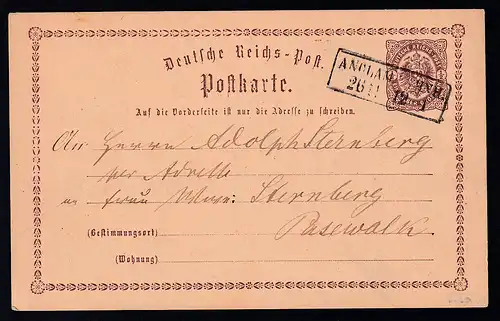 Deutsche Reichs-Post.
Postkarte.
ANCLAM BNH.
26 11 12-1
Auf die Vorderseite ist nur die Adresse zu schreiben.
An Herrn Adolph Sternberg
per Adresse
Frau Wwe: Sternberg
Pasewalk.
(Bestimmungsort)
(Wohnung)